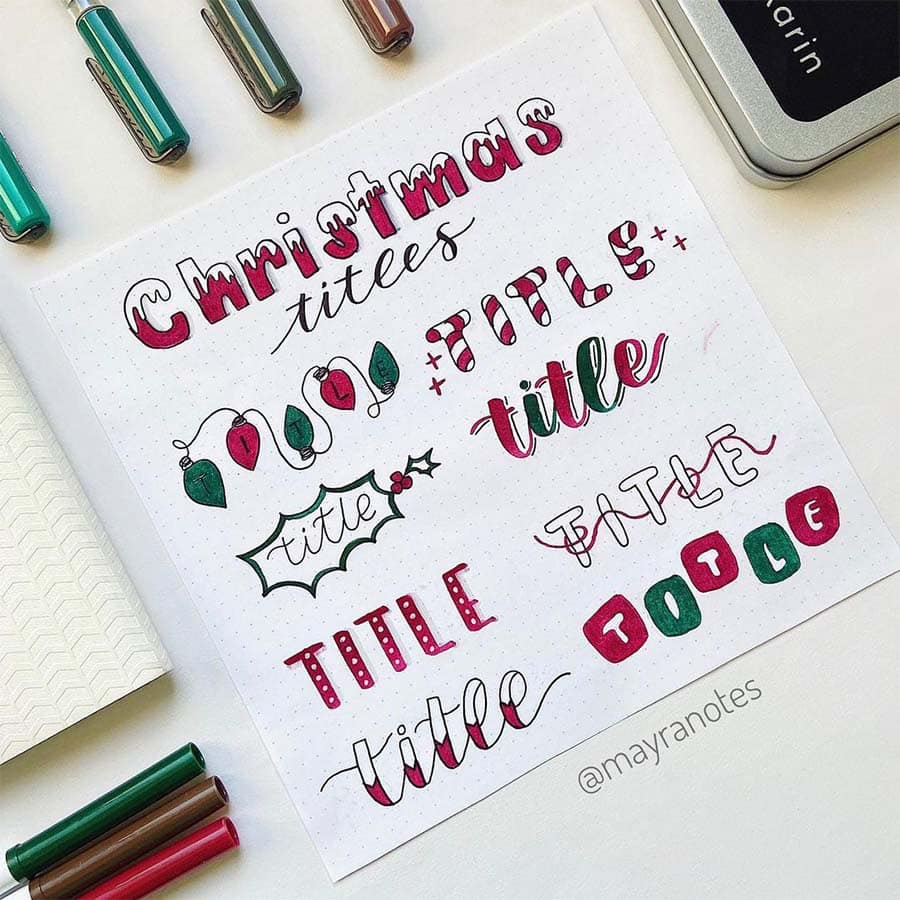 Karin
Christmas
titles
TITLE
TITLE
title
title
TITLE
TITLE
TITLE
title
@mayranotes